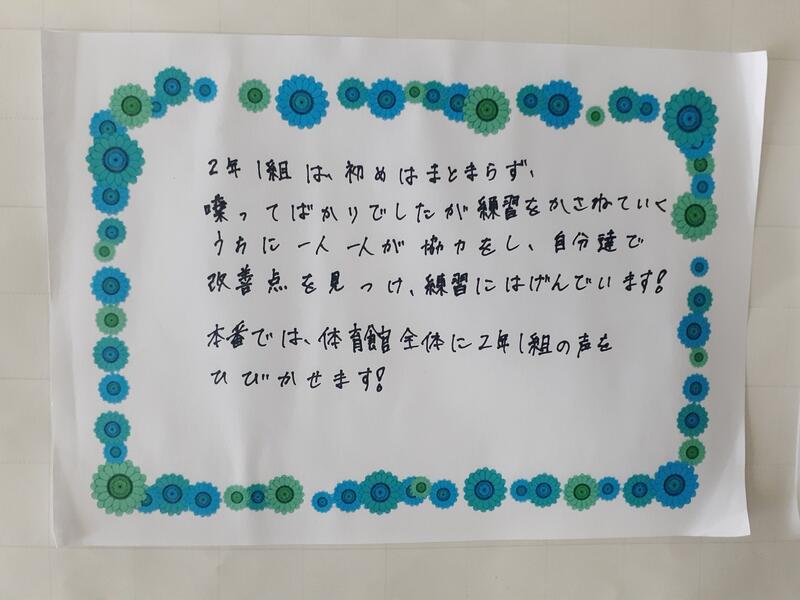 2年1組は、初めはまとまらず、
喋ってばかりでしたが練習をかさねていく
うちに一人一人が協力をし、自分達で
改善点を見つけ、練習にはげんでいます!
本番では、体育館全体に2年1組の声を
ひびかせます!